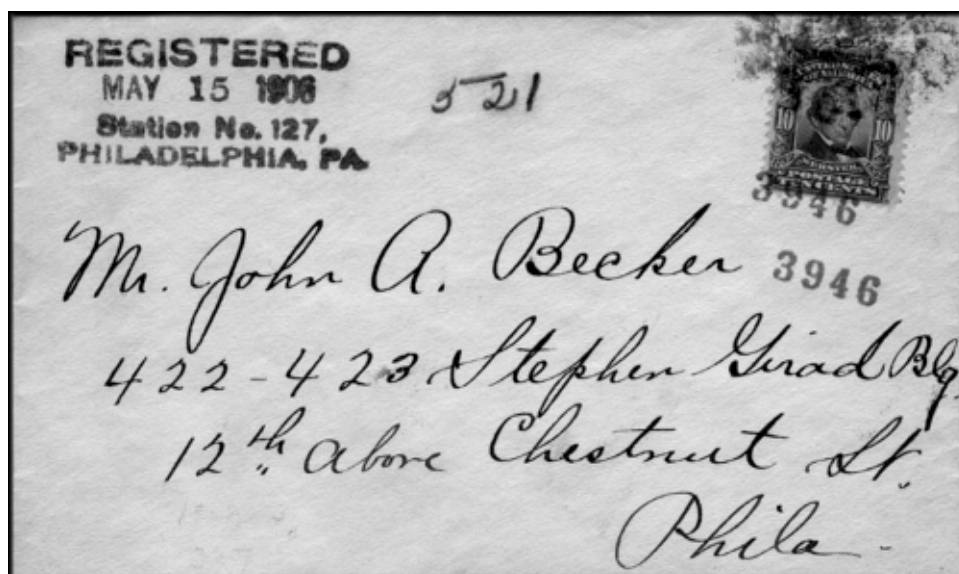 REGISTERED
MAY 15 1906
Station No. 127,
PHILADELPHIA, PA.
521
10 10
WEBSTER
POSTAGE
3946
3946
Mr. John A. Becker
422-423 Stephen Girad Blg.
12th above Chestnut St.
Phila.